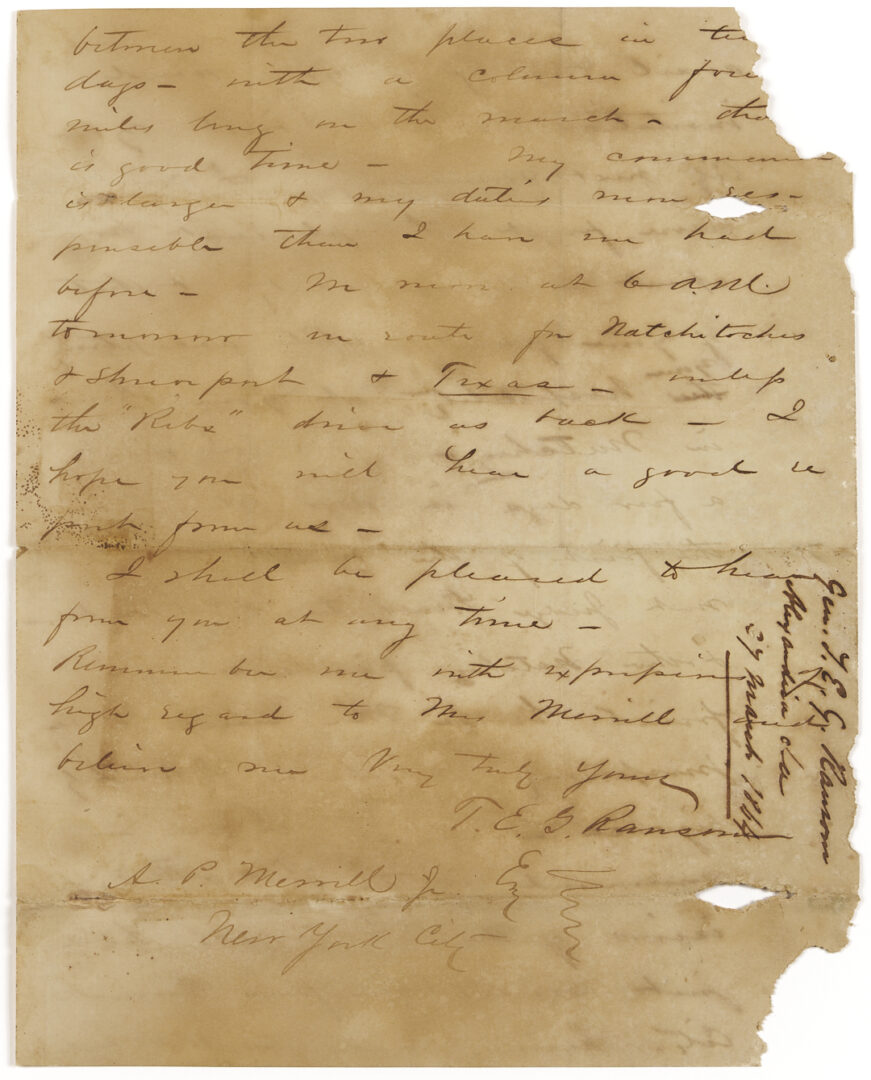 between the two places in te
days - with a column four
miles long on the march - tha
is good time - My comman
is larger & my duties more res-
ponsible than I have ever had
before - We move at 6 A.M.
tomorrow en route for Natchitoches
& Shreveport & Texas - unless
the "Rebs" drive us back - I
hope you will hear a good re
port from us -
I shall be pleased to hear
from you at any time -
Remember me with expressions of
high regard to Mrs Merrill and
believe me Very truly Yours
T. E. G. Ransom
A. P. Merrill Jr. Esq
New York City
Gen. T. E. G. Ransom
Alexandria La
27 March 1864